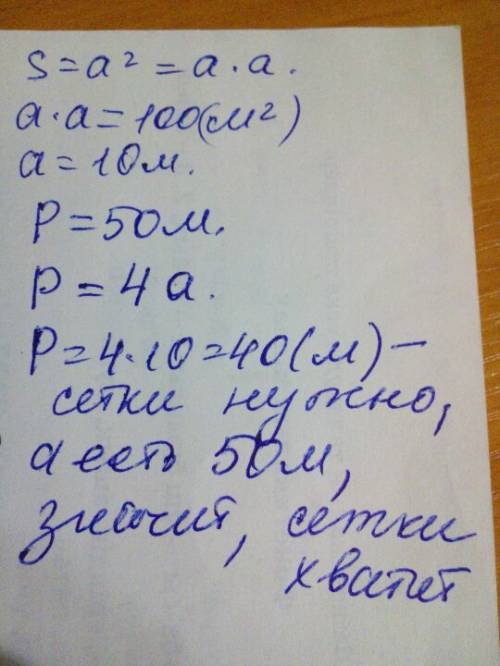 S=a²=a·a.
a·a=100(м²)
a=10м.
P=50м.
P=4a.
P=4·10=40(м)–
сетки нужно,
а есть 50м,
значит, сетки
хватит